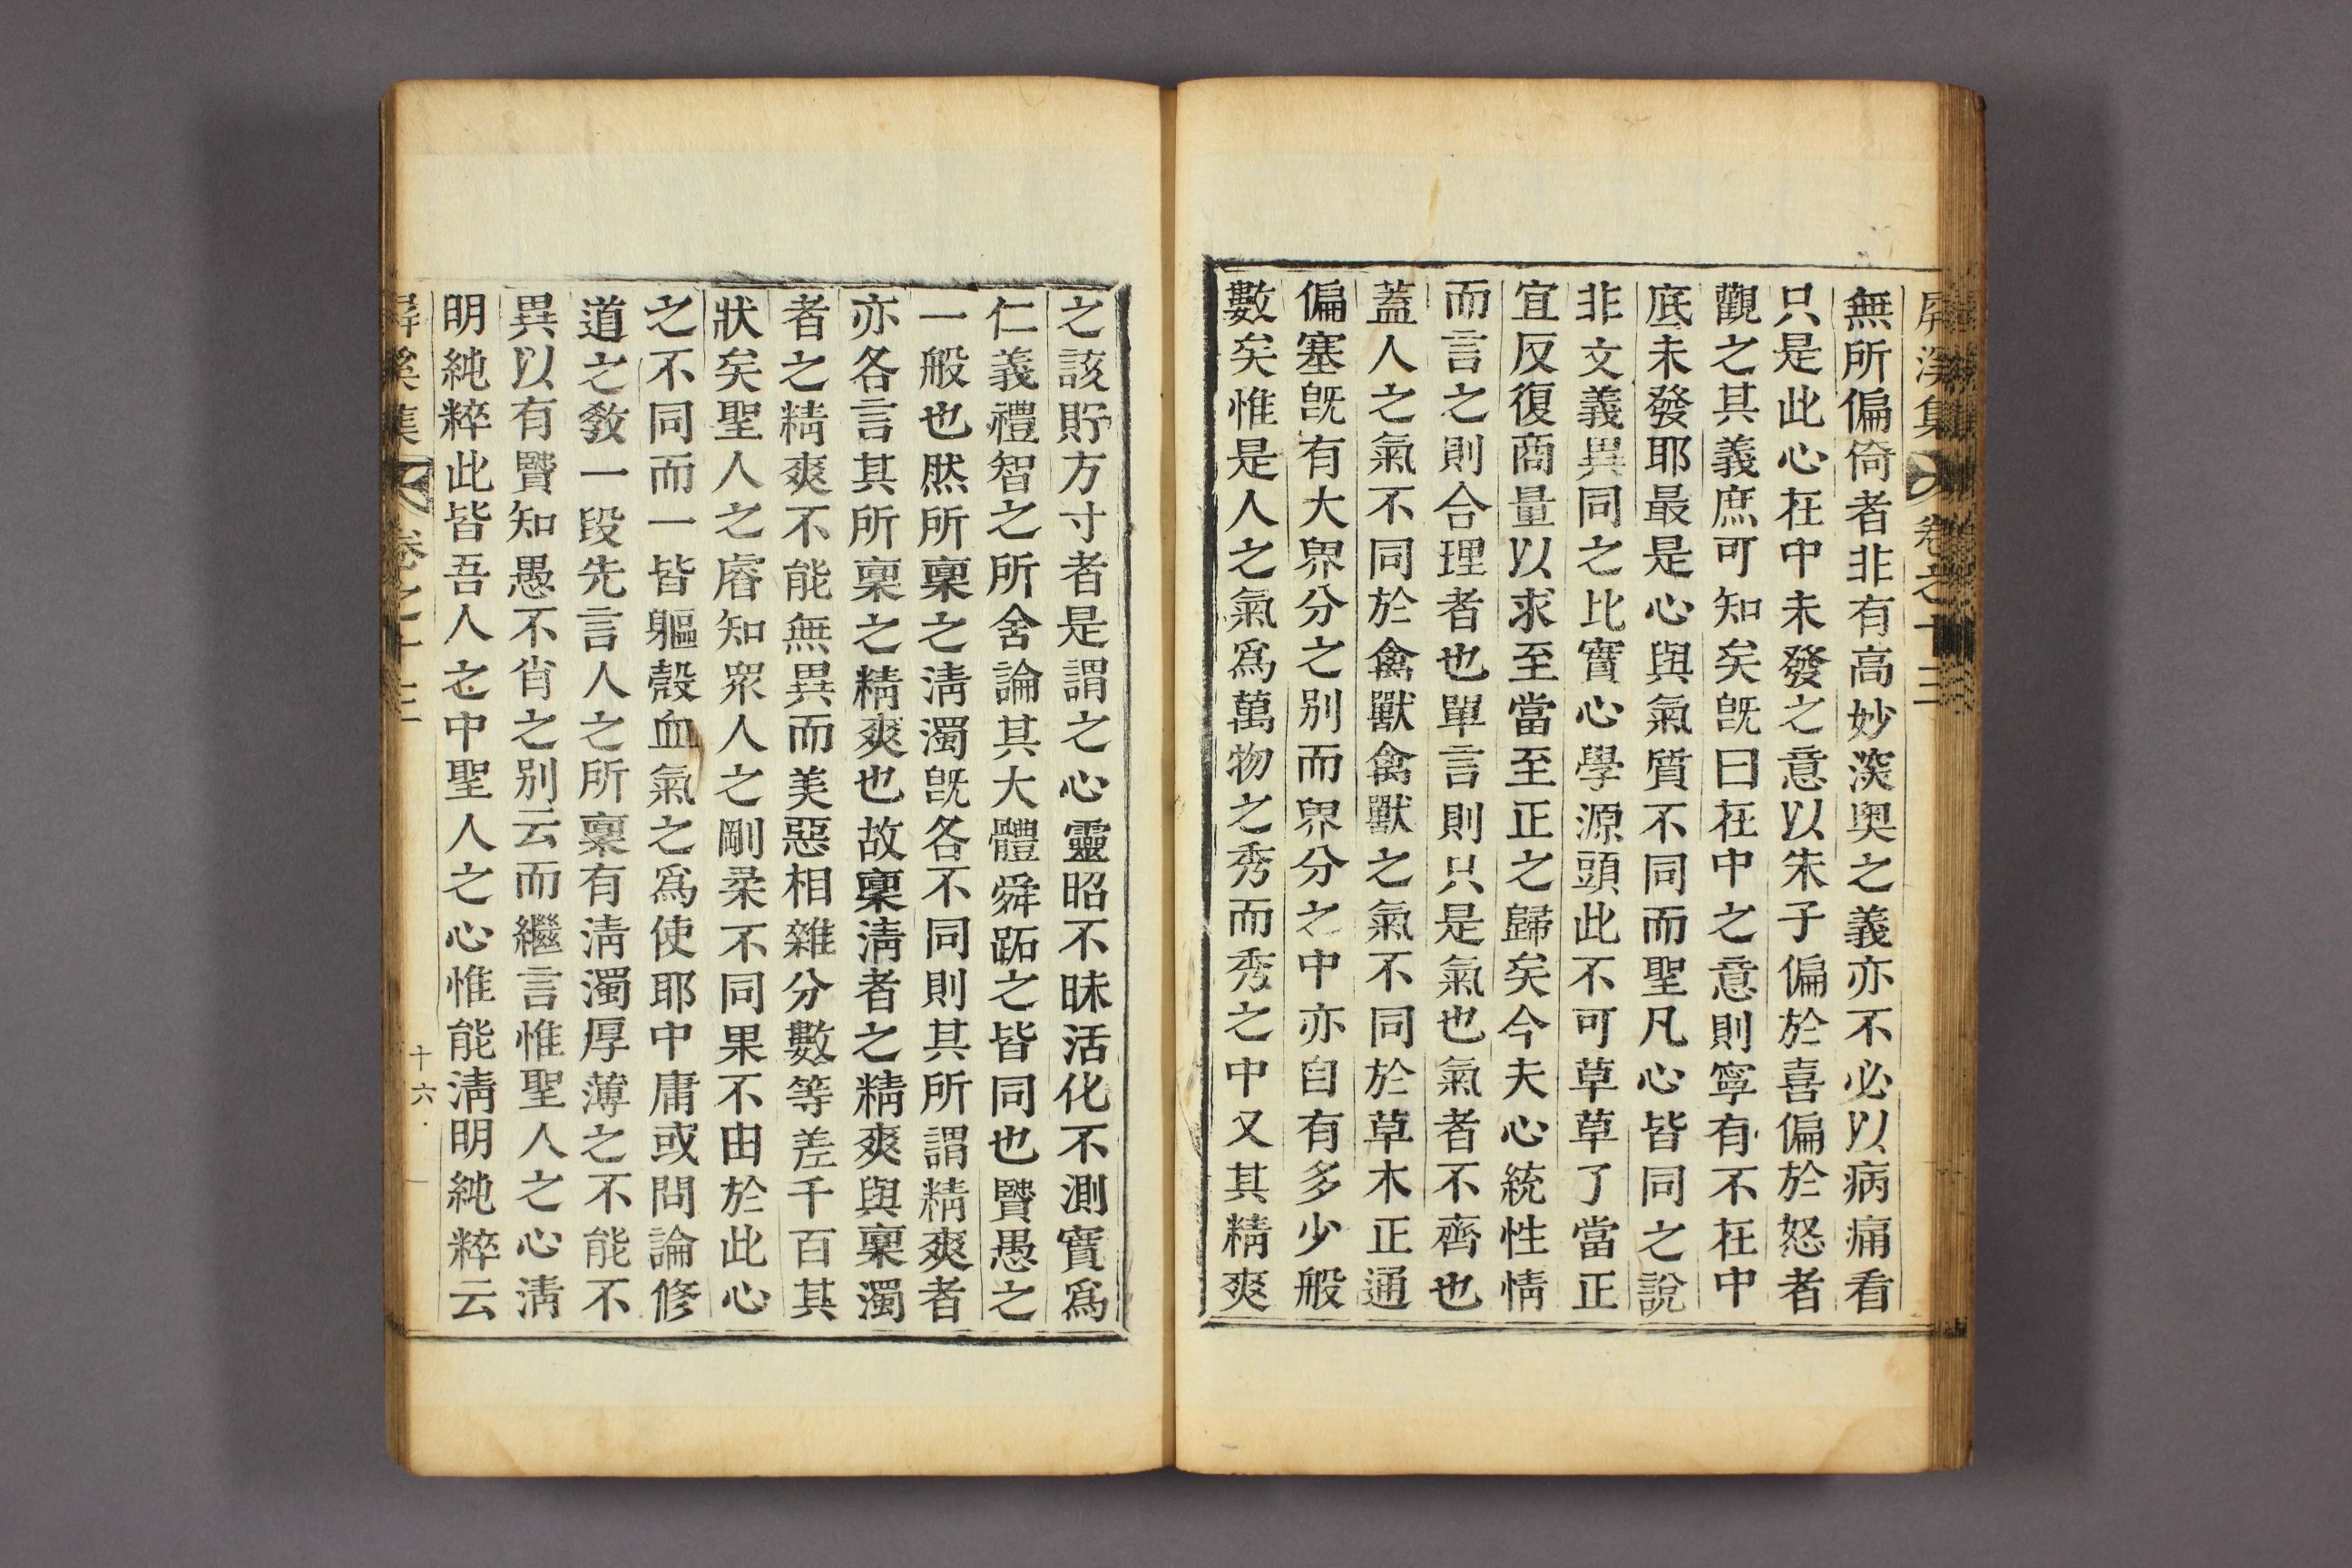 屏溪集 卷之十三
無所偏倚者非有高妙深奧之義亦不必以病痛看
只是此心在中未發之意以朱子偏於喜偏於怒者
觀之其義庶可知矣旣曰在中之意則寧有不在中
底未發耶最是心與氣質不同而聖凡心皆同之說
非文義異同之比實心學源頭此不可草草了當正
宜反復商量以求至當至正之歸矣今夫心統性情
而言之則合理者也單言則只是氣也氣者不齊也
蓋人之氣不同於禽獸禽獸之氣不同於草木正通
偏塞旣有大界分之別而界分之中亦自有多少般
數矣惟是人之氣爲萬物之秀而秀之中又其精爽
之該貯方寸者是謂之心靈昭不昧活化不測實爲
仁義禮智之所舍論其大體舜跖之皆同也賢愚之
一般也然所稟之淸濁旣各不同則其所謂精爽者
亦各言其所稟之精爽也故稟淸者之精爽與稟濁
者之精爽不能無異而美惡相雜分數等差千百其
狀矣聖人之睿知衆人之剛柔不同果不由於此心
之不同而一皆軀殼血氣之爲使耶中庸或問論修
道之敎一段先言人之所稟有淸濁厚薄之不能不
異以有賢知愚不肖之別云而繼言惟聖人之心淸
明純粹此皆吾人之中聖人之心惟能淸明純粹云
屏溪集 卷之十三 十六